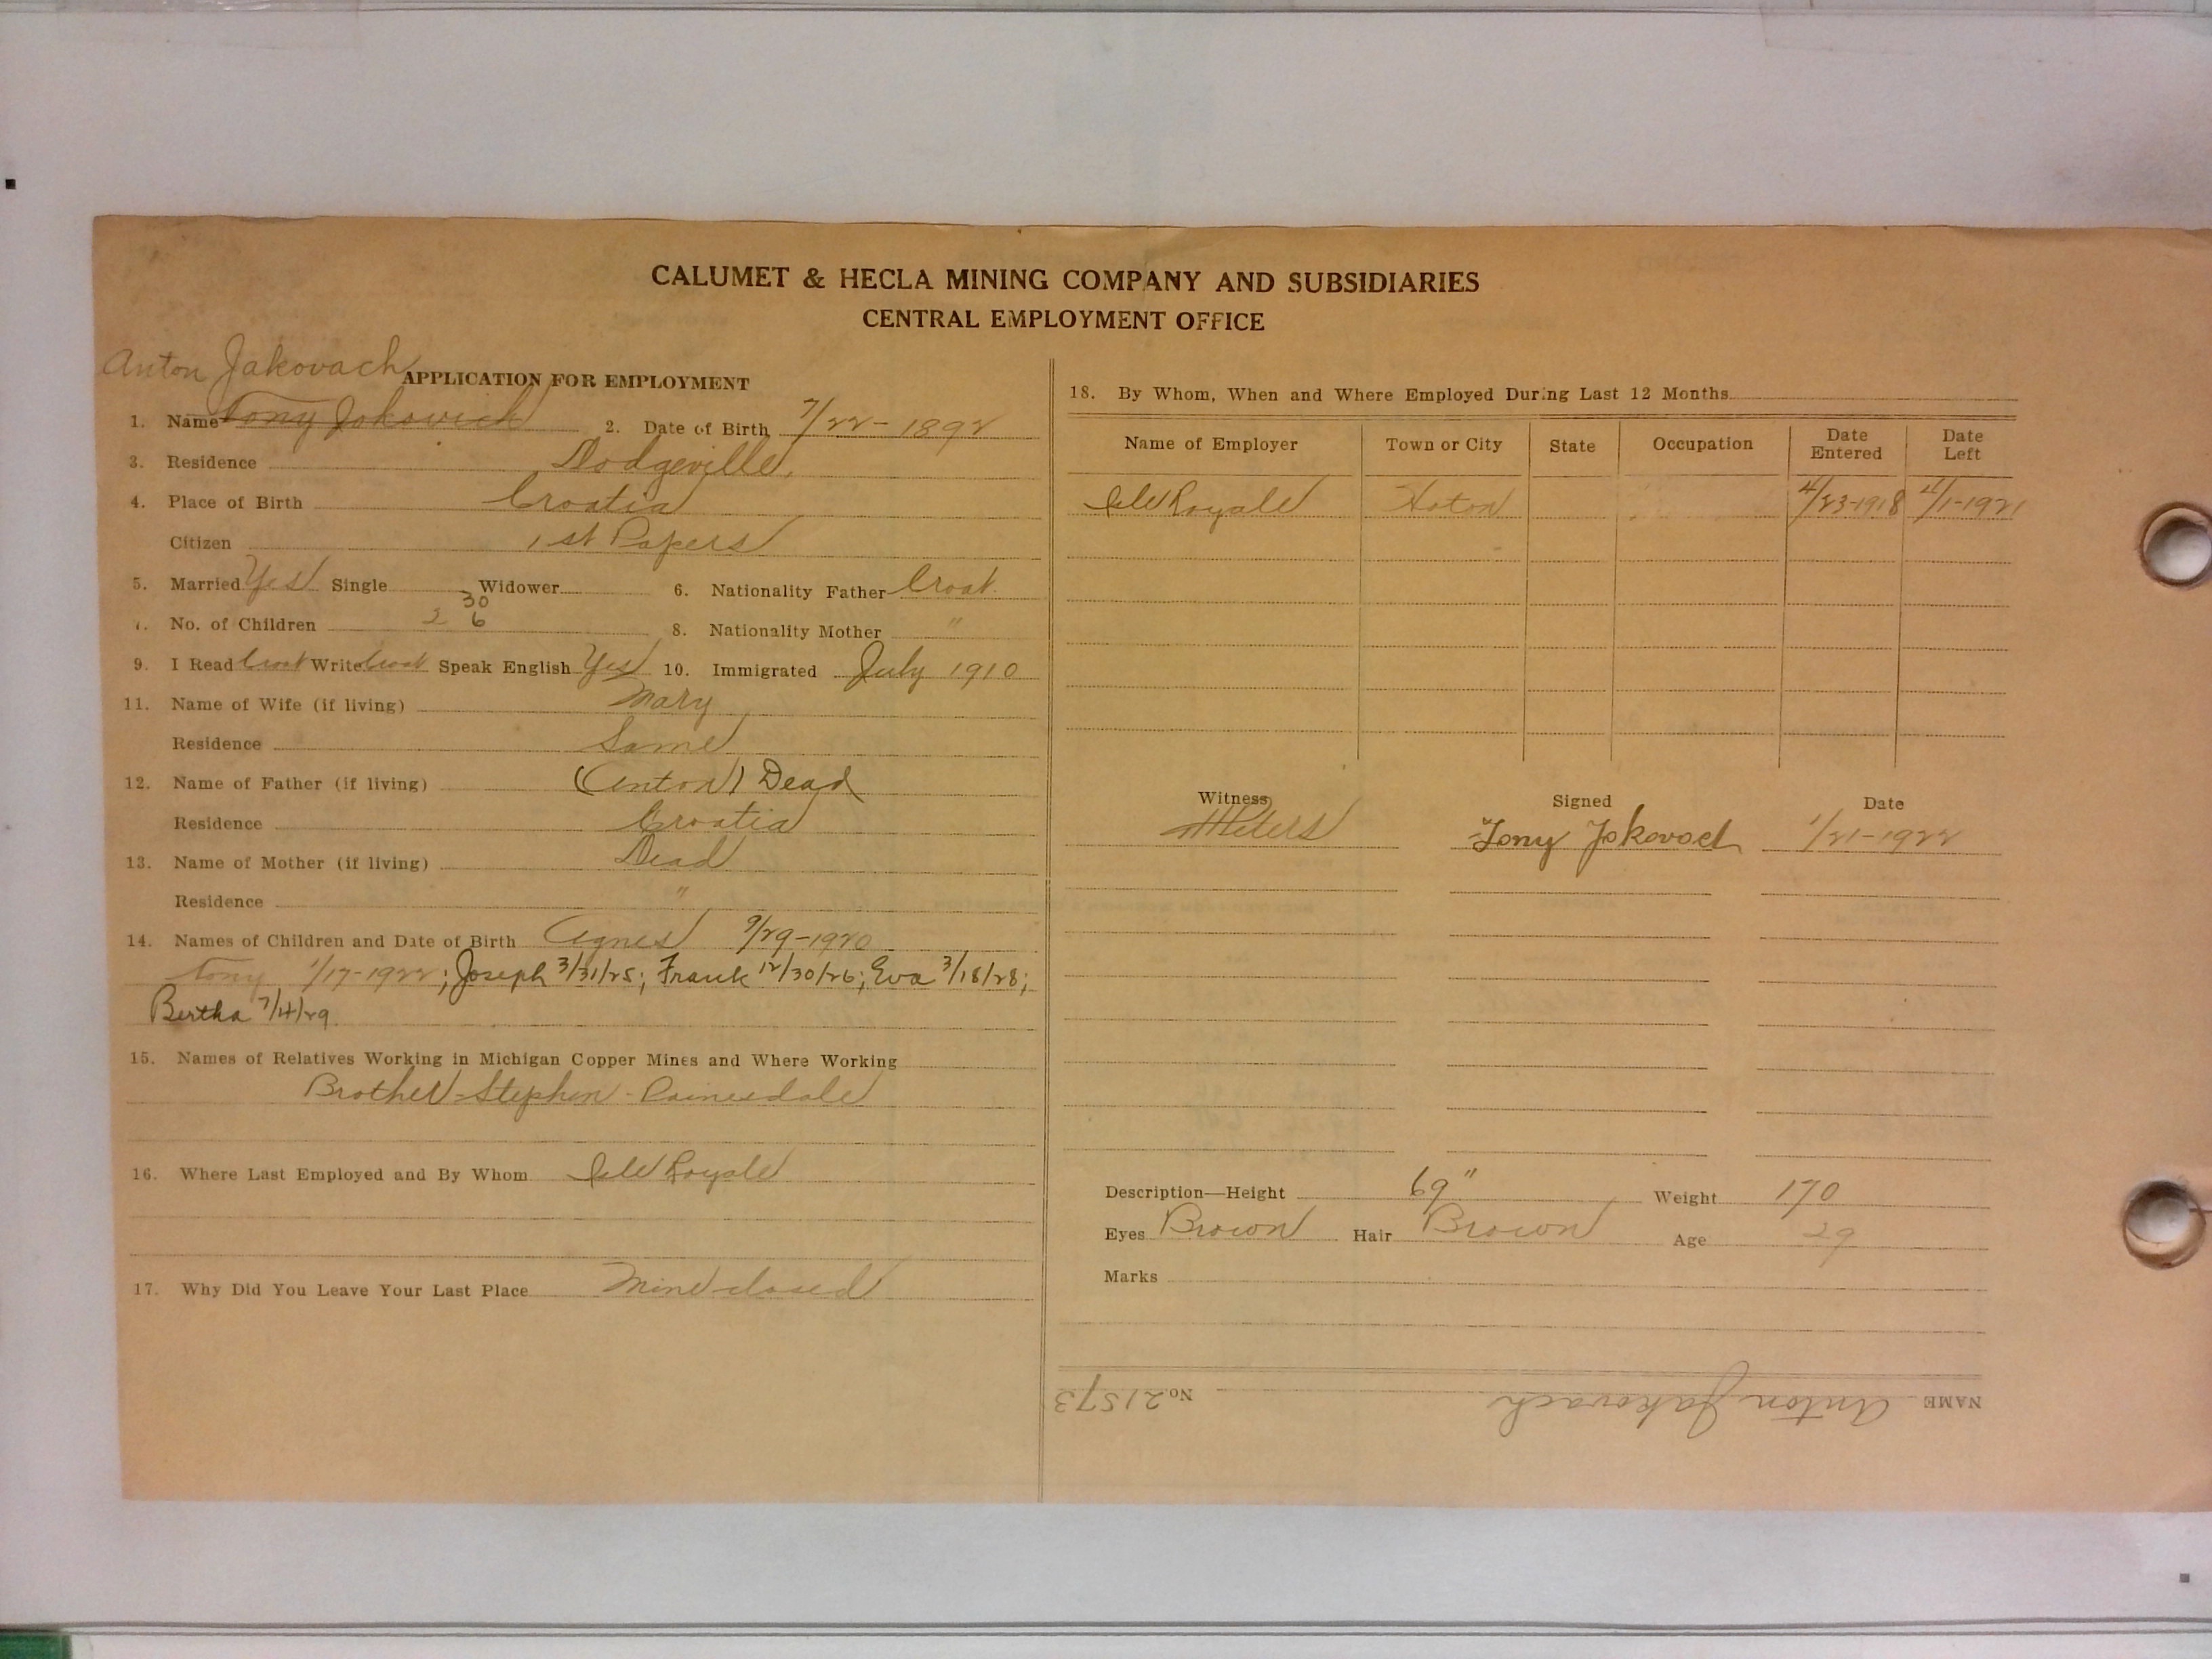 CALUMET & HECLA MINING COMPANY AND SUBSIDIARIES
CENTRAL EMPLOYMENT OFFICE
Anton Jakovach
APPLICATION FOR EMPLOYMENT
1. Name Tony Jokovich 2. Date of Birth 7/22-1892
3. Residence Dodgeville.
4. Place of Birth Croatia
Citizen 1st Papers
5. Married Yes Single Widower 6. Nationality Father Croat
30
7. No. of Children 2 6 8. Nationality Mother "
9. I Read Croat Write Croat Speak English Yes 10. Immigrated July 1910
11. Name of Wife (if living) Mary
Residence Same
12. Name of Father (if living) (Anton) Dead
Residence Croatia
13. Name of Mother (if living) Dead
Residence "
14. Names of Children and Date of Birth Agnes 9/29-1920
Tony 1/17-1922; Joseph 3/31/25; Frank 12/30/26; Eva 3/18/28;
Bertha 7/4/29
15. Names of Relatives Working in Michigan Copper Mines and Where Working
Brother-Stephen-Painesdale
16. Where Last Employed and By Whom Isle Royale
17. Why Did You Leave Your Last Place Mine closed
18. By Whom, When and Where Employed During Last 12 Months
Name of Employer Town or City State Occupation Date Entered Date Left
Isle Royale Hoton 4/23-1918 4/1-1921
Witness Signed Date
Peters Tony Jokovach 1/21-1922
Description—Height 69" Weight 170
Eyes Brown Hair Brown Age 29
Marks
NAME Anton Jakovach No. 21573